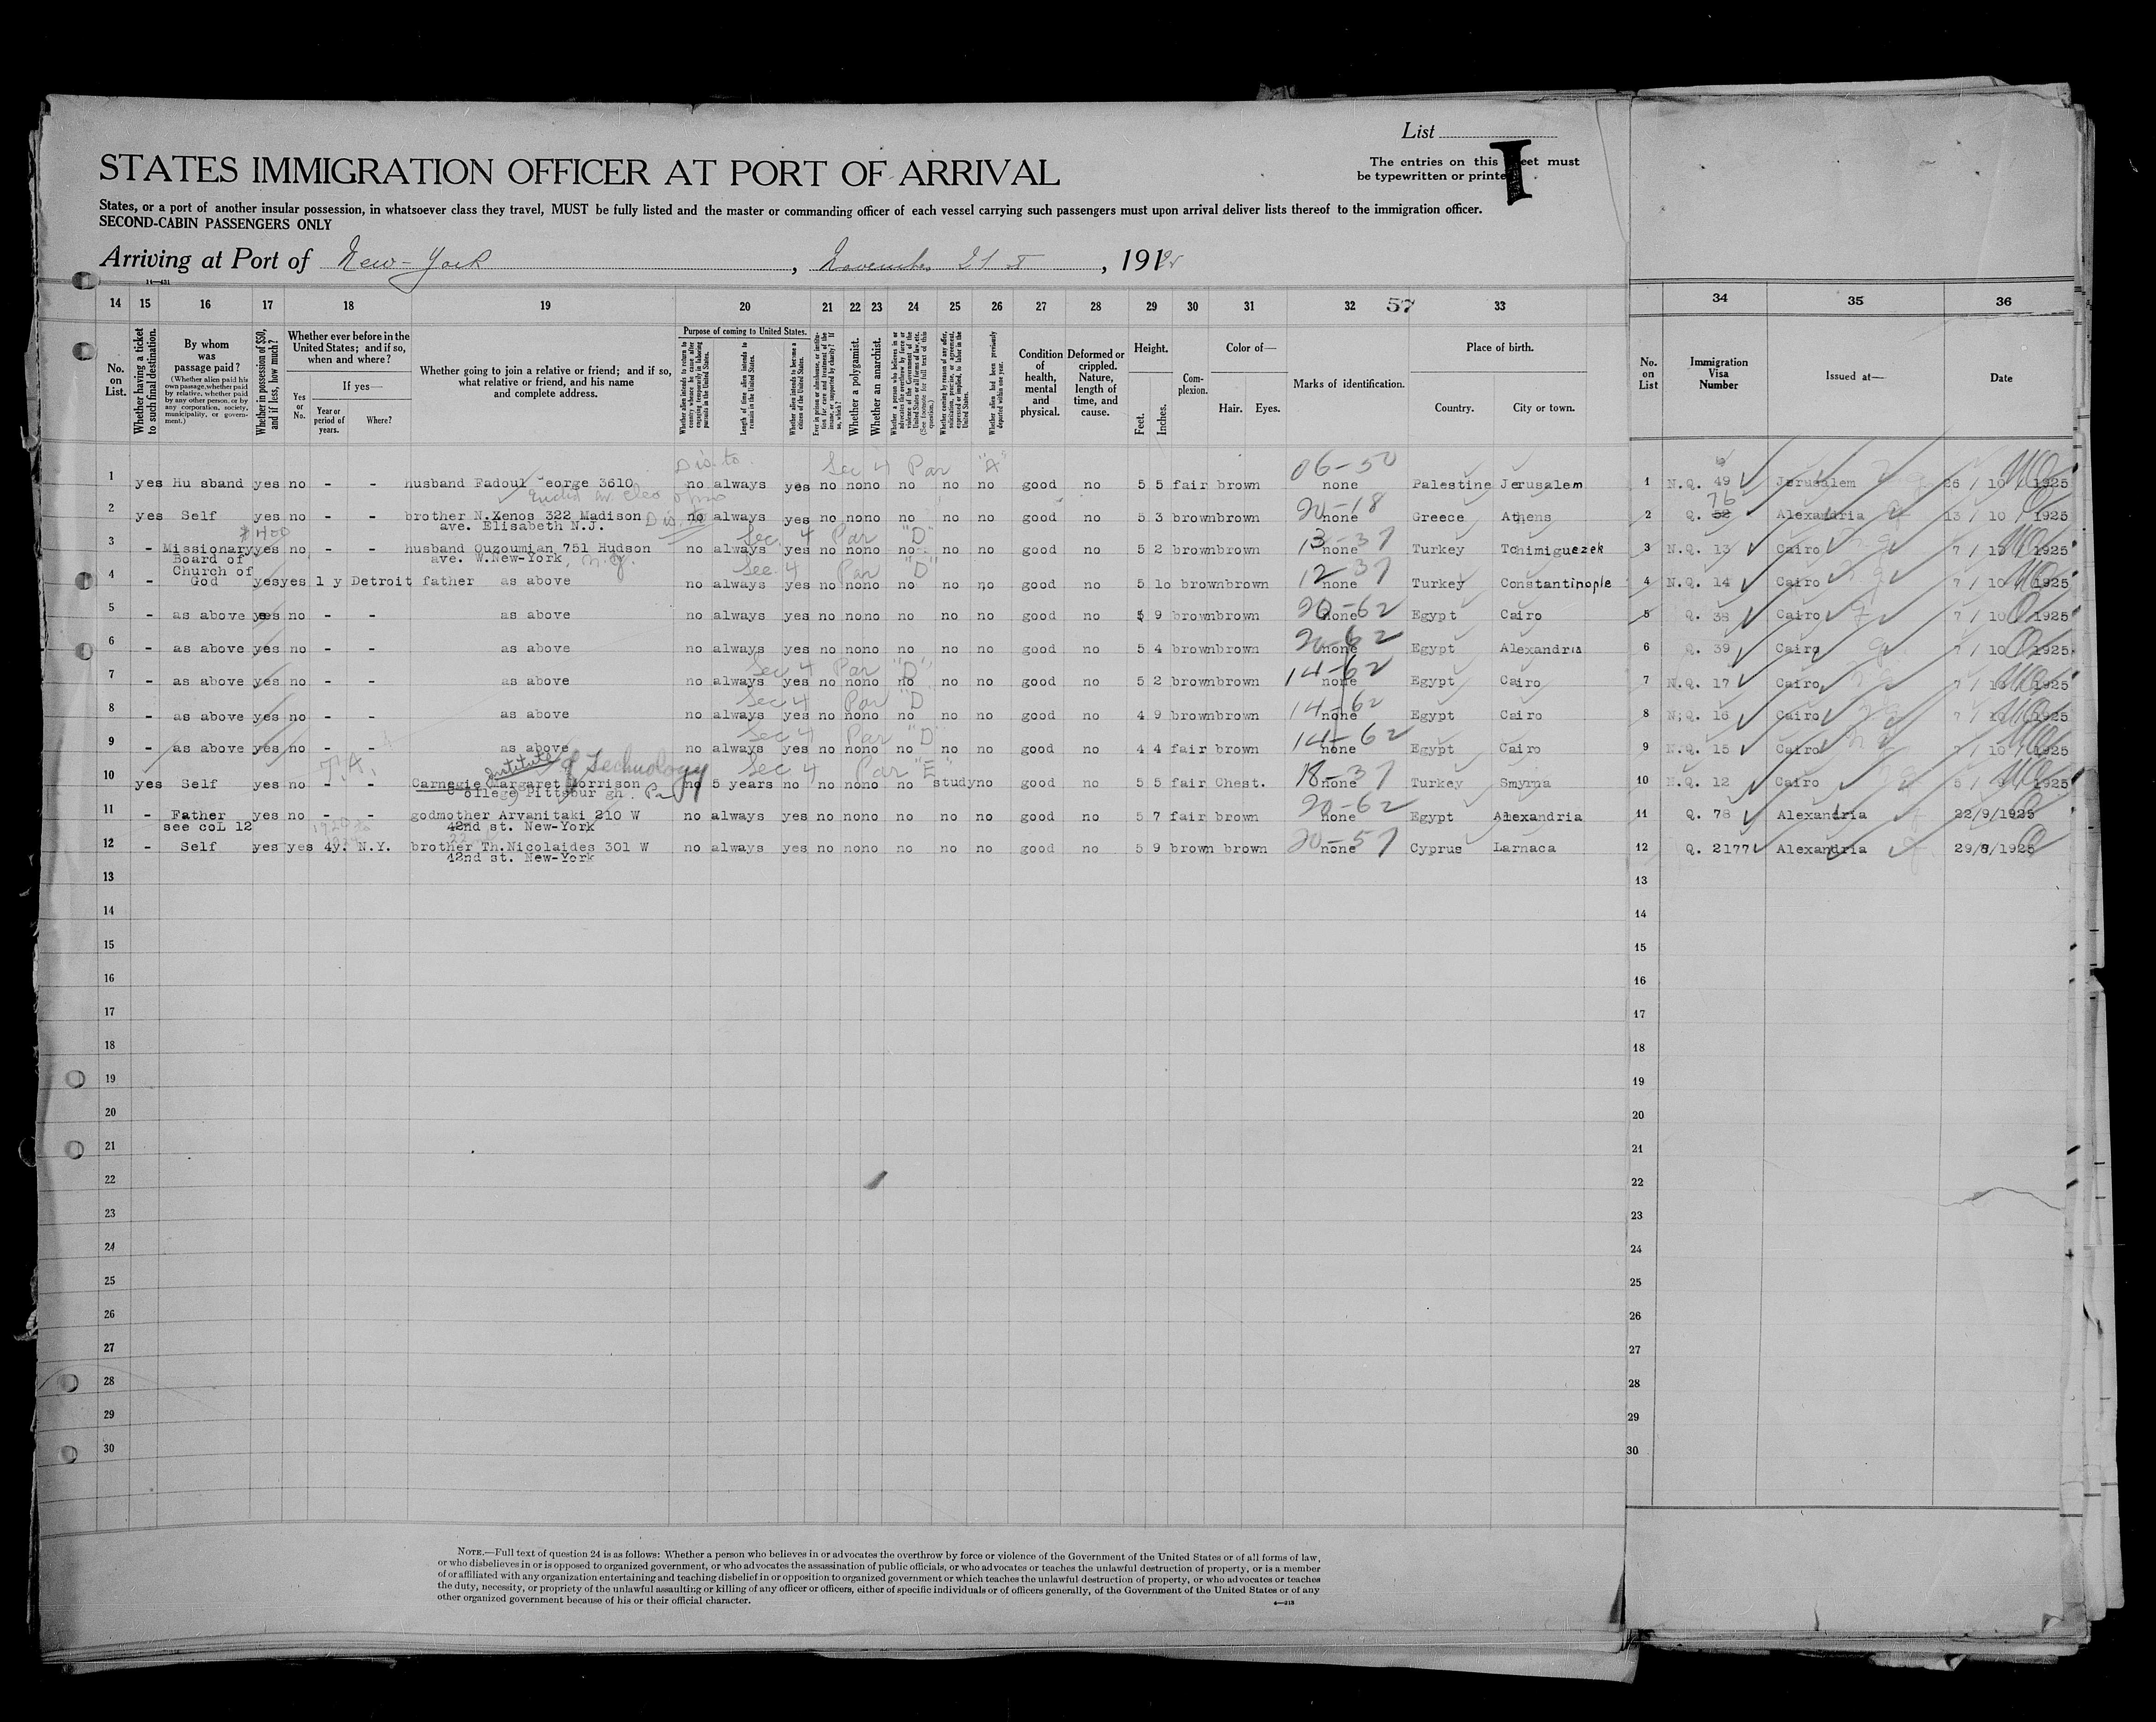 List
I
The entries on this sheet must
be typewritten or printed
STATES IMMIGRATION OFFICER AT PORT OF ARRIVAL
States, or a port of another insular possession, in whatsoever class they travel, MUST be fully listed and the master or commanding officer of each vessel carrying such passengers must upon arrival deliver lists thereof to the immigration officer.
SECOND-CABIN PASSENGERS ONLY
Arriving at Port of New-York, November 21st, 191
14 15 16 17 18 19 20 21 22 23 24 25 26 27 28 29 30 31 32 57 33 34 35 36
No. on List.
Whether having a ticket to such final destination.
By whom was passage paid?
(Whether alien paid his own passage, whether paid by relative, whether paid by any other person, or by any corporation, society, municipality, or government.)
Whether in possession of $50, and if less, how much?
Whether ever before in the United States; and if so, when and where?
Yes or No.
If yes—
Year or period of years.
Where?
Whether going to join a relative or friend; and if so, what relative or friend, and his name and complete address.
Purpose of coming to United States.
Whether alien intends to return to country whence he came after engaging temporarily in laboring pursuits in the United States.
Length of time alien intends to remain in the United States.
Whether alien intends to become a citizen of the United States.
Whether a polygamist.
Whether an anarchist.
Condition of health, mental and physical.
Deformed or crippled. Nature, length of time, and cause.
Height.
Feet. Inches.
Complexion.
Color of—
Hair. Eyes.
Marks of identification.
Place of birth.
Country. City or town.
No. on List
Immigration Visa Number
Issued at—
Date
Dis. to Sec 4 Par "A" 06-50
1 yes Hu sband yes no - - husband Fadoul eorge 3610 no always yes no no no no no no good no 5 5 fair brown none Palestine Jerusalem 1 N.Q. 49 Jerusalem 26 / 10 / 1925
Euclid av. Cleo Ohio
2 yes Self yes no - - brother N.Xenos 322 Madison no always yes no no no no no no good no 5 3 brown brown none 20-18 Greece Athens 2 Q. 52 76 Alexandria 13 / 10 / 1925
ave. Elisabeth N.J. Dis. to
$400 Sec. 4 Par "D" 13-37
3 - Missionary yes no - - husband Ouzoumian 751 Hudson no always yes no no no no no no good no 5 2 brown brown none Turkey Tchimiguezek 3 N.Q. 13 Cairo 7 / 10 1925
Board of ave. W.New-York, N.J. Sec. 4 Par "D"
Church of
4 - God yes yes 1 y Detroit father as above no always yes no no no no no no good no 5 10 brown brown none 12-37 Turkey Constantinople 4 N.Q. 14 Cairo 7 / 10 1925
5 - as above yes no - - as above no always yes no no no no no no good no 5 9 brown brown none 20-62 Egypt Cairo 5 Q. 38 Cairo 7 / 10 1925
6 - as above yes no - - as above no always yes no no no no no no good no 5 4 brown brown none 20-62 Egypt Alexandria 6 Q. 39 Cairo 7 / 10 1925
Sec 4 Par "D"
7 - as above yes no - - as above no always yes no no no no no no good no 5 2 brown brown none 14-62 Egypt Cairo 7 N.Q. 17 Cairo 7 / 10 1925
Sec 4 Par "D"
8 - as above yes no - - as above no always yes no no no no no no good no 4 9 brown brown none 14-62 Egypt Cairo 8 N.Q. 16 Cairo 7 / 10 1925
Sec 4 Par "D"
9 - as above yes no - - as above no always yes no no no no no no good no 4 4 fair brown none 14-62 Egypt Cairo 9 N.Q. 15 Cairo 7 / 10 1925
T.A. Institute of Technology Sec 4 Par "E"
10 yes Self yes no - - Carnegie Margaret Morrison no 5 years no no no no no study no good no 5 5 fair Chest. none 18-37 Turkey Smyrna 10 N.Q. 12 Cairo 1925
College Pittsbur gh. Pa
11 - Father yes no - - godmother Arvanitaki 210 W no always yes no no no no no no good no 5 7 fair brown none 20-62 Egypt Alexandria 11 Q. 78 Alexandria 22/9/1925
see coL 12 42nd st. New-York
12 - Self yes yes 4y. N.Y. brother Th.Nicolaides 301 W no always yes no no no no no no good no 5 9 brown brown none 20-57 Cyprus Larnaca 12 Q. 2177 Alexandria 29/8/1925
42nd st. New-York
13 13
14 14
15 15
16 16
17 17
18 18
19 19
20 20
21 21
22 22
23 23
24 24
25 25
26 26
27 27
28 28
29 29
30 30
NOTE.—Full text of question 24 is as follows: Whether a person who believes in or advocates the overthrow by force or violence of the Government of the United States or of all forms of law,
or who disbelieves in or is opposed to organized government, or who advocates the assassination of public officials, or who advocates or teaches the unlawful destruction of property, or is a member
of or affiliated with any organization entertaining and teaching disbelief in or opposition to organized government or which teaches the unlawful destruction of property, or who advocates or teaches
the duty, necessity, or propriety of the unlawful assaulting or killing of any officer or officers, either of specific individuals or of officers generally, of the Government of the United States or of any
other organized government because of his or their official character.